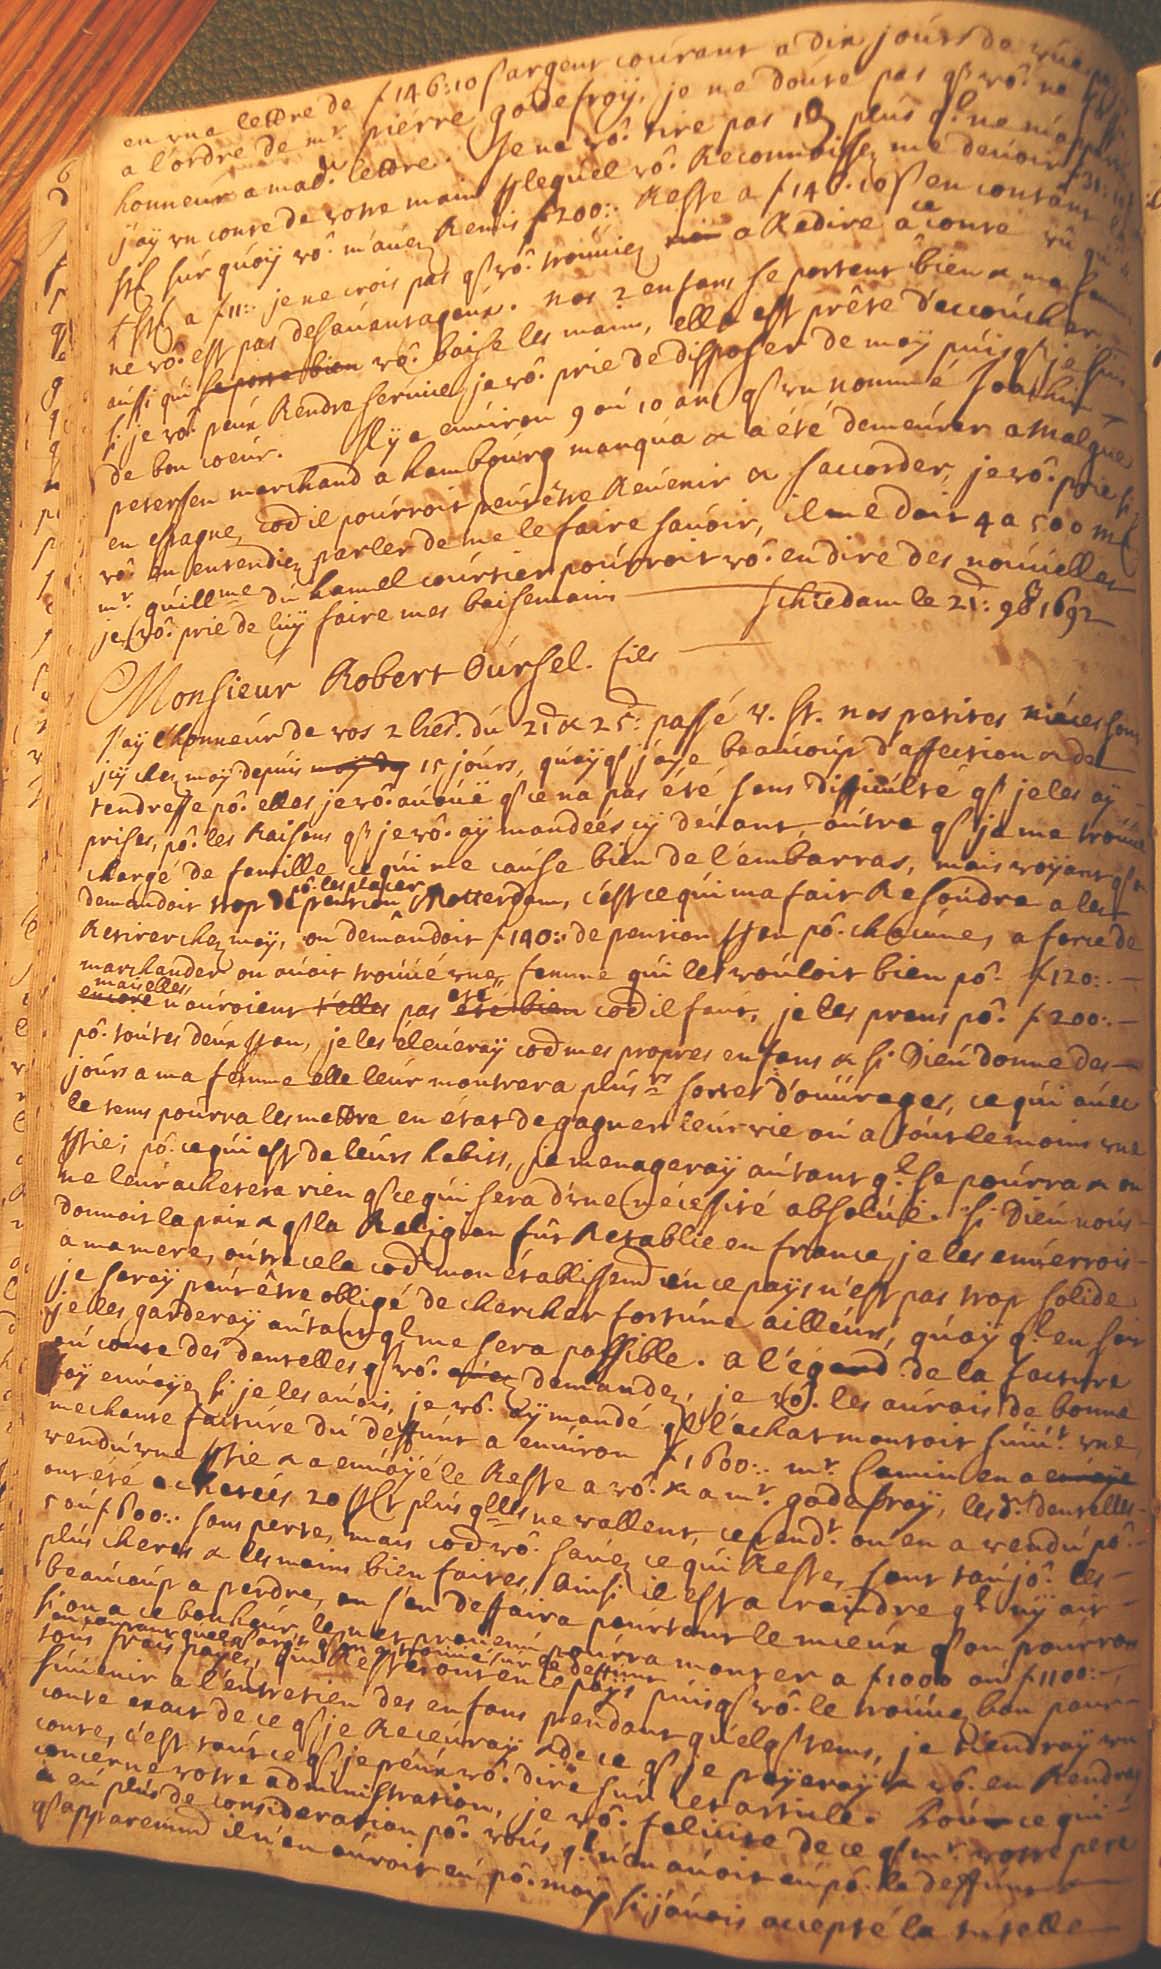 en une lettre de f 146:10 s argent courant a dix jours de vüe
a l'ordre de mr. pierre godefroÿ, je me doute pas qe vô. ne
honneur a mad. lettre. Je ne vô. tire pas plus qe. ne m'appart
j'aÿ vu conte de votre main lequel vô. Reconnoissez me devoir f 31:10
sur quoÿ vô. m'avez Remis f 200:. Reste a f 146.10 s en contant
a f 11:. je ne crois pas qe vô. trouviez rien a Redire a ce conte vû qu'il
ne vô. est pas desavantageux. nos 2 enfans se portent bien & ma femme
aussi qui se porte bien vô. baise les mains, elle est prête d'accoucher.
si je vô. peux Rendre service, je vô. prie de disposer de moÿ puisqe je suis
de bon coeur. Il y a environ 9 ou 10 ans qe un nommé Joachim
petersen marchand a hambourg manqua & a été demeurer a Malgue
en espagne, cod il pourroit peut être Revenir & s'accorder, je vô. prie si
vô. en entendiez parler de me le faire savoir, il me doit 4 a 500 m
mr. guillme du hamel courtier pourroit vô. en dire des nouvelles
je vô. prie de luÿ faire mes baisemains
schiedam le 21: 9b 1692
Monsieur Robert Oursel. fils
J'aÿ l'honneur de vos 2 lres. du 21 & 25: passé v. st. nos petites niéces sont
icÿ chez moÿ depuis moÿ de 15 jours, quoÿqe j'aÿe beaucoup d'affection & de
tendresse pô. elles je vô. avoüe qe ce na pas été sans difficulté qe je les aÿ
prises, pô. les Raisons qe je vô. aÿ mandées cÿ devant, outre qe je me trouve
chargé de famille ce qui me cause bien de l'embarras, mais voÿant qe
pô. les placer
demandoit trop de pention a Rotterdam, c'est ce qui m'a fait Resoudre a les
Retirer chez moÿ, on demandoit f 140:. de pention pô. chacune, a force de
marchander on avoit trouvé une femme qui les vouloit bien pô. f 120:.
mais elles été
encore n'auroient t'elles pas été bien cod il faut, je les prens pô. f 200:.
pô. toutes deux an, je les éleveraÿ cod mes propres enfans & si Dieu donne des
jours a ma femme elle leur montrera plusrs sortes d'ouvrages, ce qui avec
le tems pourra les mettre en état de gagner leur vie ou a tout le moins une
ptie; pô. ce qui est de leurs habits, je menageraÿ autant qe. se pourra & on
ne leur achetera rien qe ce qui sera d'une nécessité absolüe. Si Dieu nous
donnoit la paix & qe la Religion fût Retablie en france, je les enverrois
a ma mere, outre cela cod mon établissemd en ce paÿs n'est pas trop solide
je seraÿ peut être obligé de chercher fortune ailleurs, quoÿ qe en soit
je les garderaÿ autant qe me sera possible. a l'égard de la facture
ou conte des dentelles qe vô. avez demandez, je vô. les aurois de bonne
foÿ envoÿez si je les avois, je vô. aÿ mandé qe l'achat montoit suivt. une
mechante facture du deffunt a environ f 1600:. mr. Camin en a envoÿé
vendu une ptie & a envoÿé le Reste a vô. & a mr. godefroÿ, les d. dentelles
ont été achetées 20 plus qelles ne vallent, cependt. on en a vendu pô.
5 ou f 600:. sans perte, mais cod vô. savez ce qui Reste, sont toujô. les
plus cheres & les moins bien faites, ainsi il est a craindre qe. n'ÿ ait
beaucoup a perdre, on s'en deffaira pourtant le mieux qe on pourra
si on a ce bonheur, le net provenu pourra monter a f 1000 ou f 1100:.
tous frais payez, qui Restent en ce paÿs puisqe vô. le trouvez bon pour
suvenir a l'entretien des enfans pendant quelqe tems, je tiendraÿ un
conte exact de ce qe je Receuvraÿ & de ce qe je paÿeraÿ & vô. en Rendraÿ
conte, c'est tout ce qe je peux vô. dire sur cet article. Pour ce qui
concerne votre administration, je vô. felicite de ce qe mr. votre pere
a eu plus de consideration pô. vous qe. n'en avoit eu pô. le deffunt
qe apparemmd il n'en auroit eu pô. moÿ si j'avois accepté la tutelle